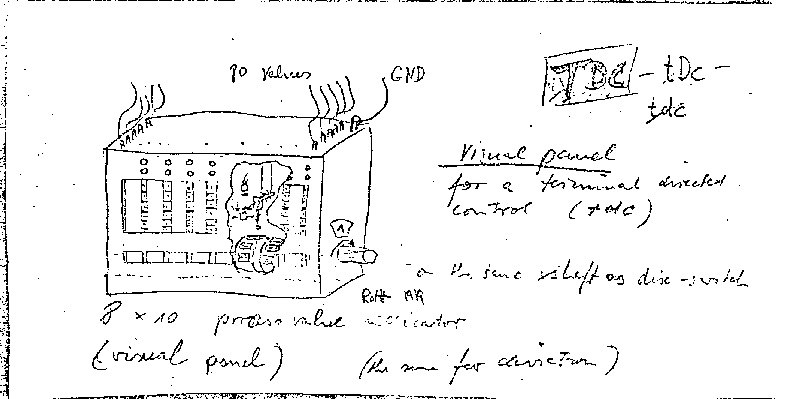 80 Values
GND
TDC - tDc -
tdc
Visual panel
for a terminal directed
control (tdc)
on the same shaft as disc-switch
8 × 10 process value indicator
(visual panel) (the same for deviation)